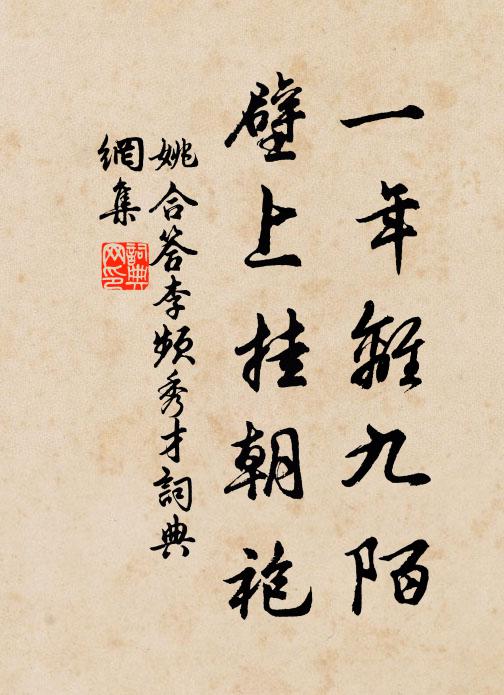 一年離九陌
壁上挂朝袍
姚合答李頻秀才詞典
網集
詞典
网印